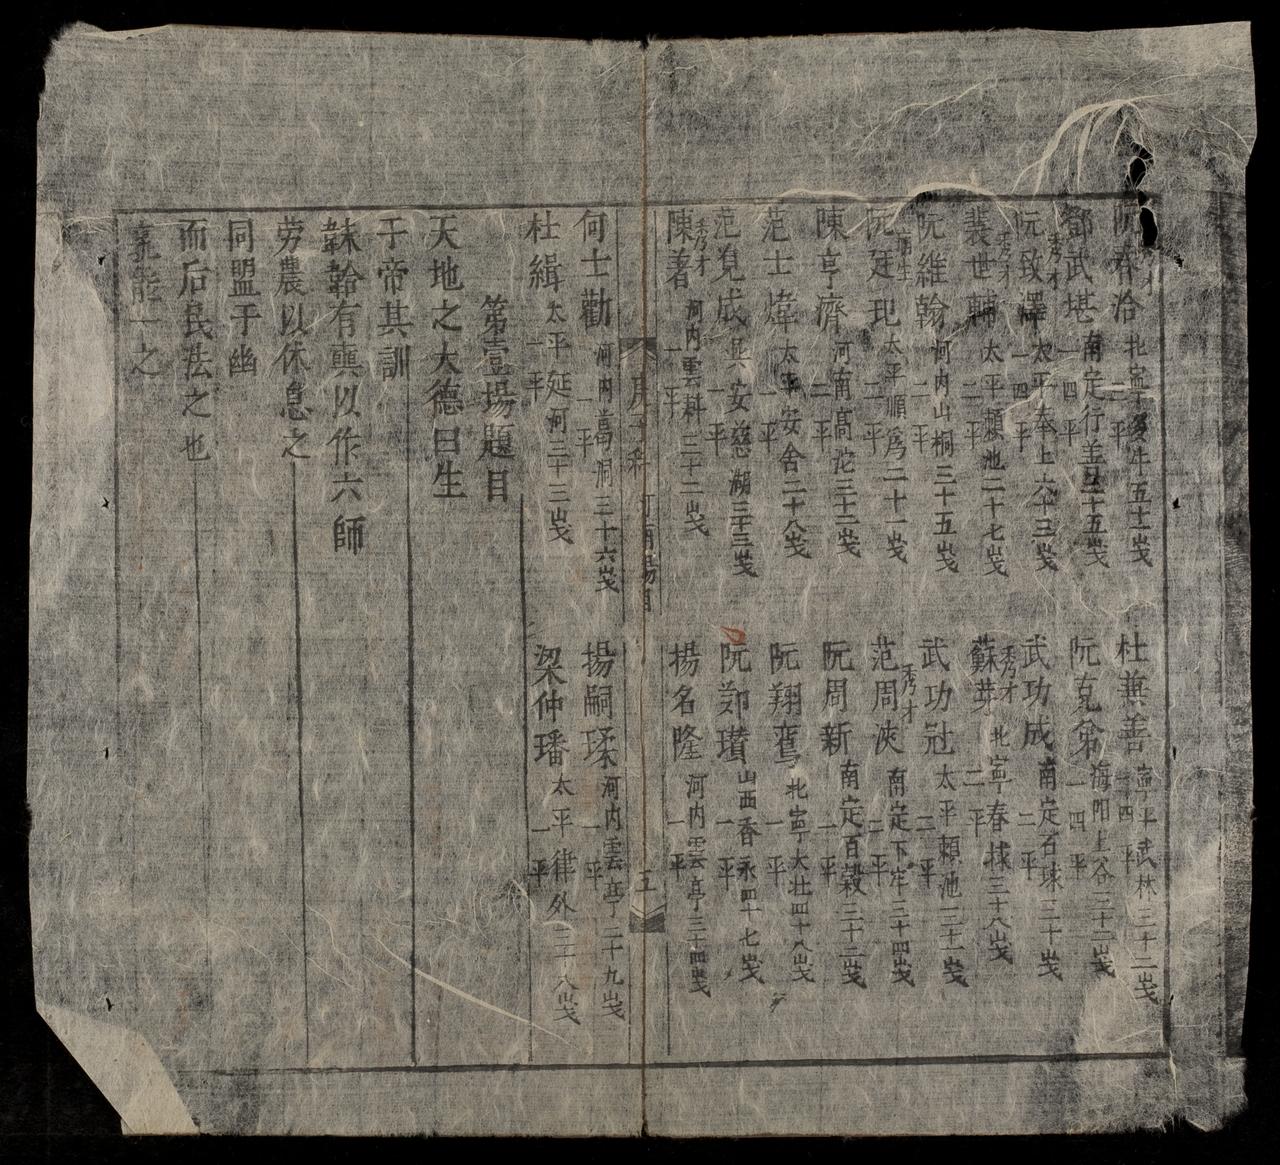 阮春洽 秀才 北寧 二平 五十一歲
杜兼善 寧平武林三十二歲 一四平
都武堪 南定行善 三十五歲 一四平
阮克弟 海陽上谷三十二歲 一四平
阮致澤 秀才 太平奉上 六十三歲 一四平
武功成 南定百球三十歲 二平
裴世輔 秀才 太平賴池二十七歲 二平
蘇芽 秀才 北寧春棣三十八歲 二平
阮維翰 河內山桐三十五歲 二平
武功冠 太平賴池二十一歲 二平
阮廷玘 蔭生 太平順為二十一歲 二平
范周浹 秀才 南定下牢三十四歲 二平
陳亨濟 河南高沱三十二歲 二平
阮周新 南定百穀三十二歲 一平
范士煒 太平安舍二十八歲 一平
阮翔鸞 北寧大壯四十八歲 一平
范覓成 興安慈湖三十三歲 一平
阮鄭瓚 山西香永四十七歲 一平
陳著 秀才 河內雲科三十二歲 一平
揚名隆 河內雲亭三十四歲 一平
科 河南場 五
何士勸 河內萬洞三十六歲 一平
揚嗣瑈 河內雲亭二十九歲 一平
杜緝 太平延河三十三歲 一平
梁仲璠 太平律外二十八歲 一平
第壹場題目
天地之大德曰生
于帝其訓
韎韐有奭以作六師
勞農以休息之
同盟于幽
而后民法之也
孰能一之